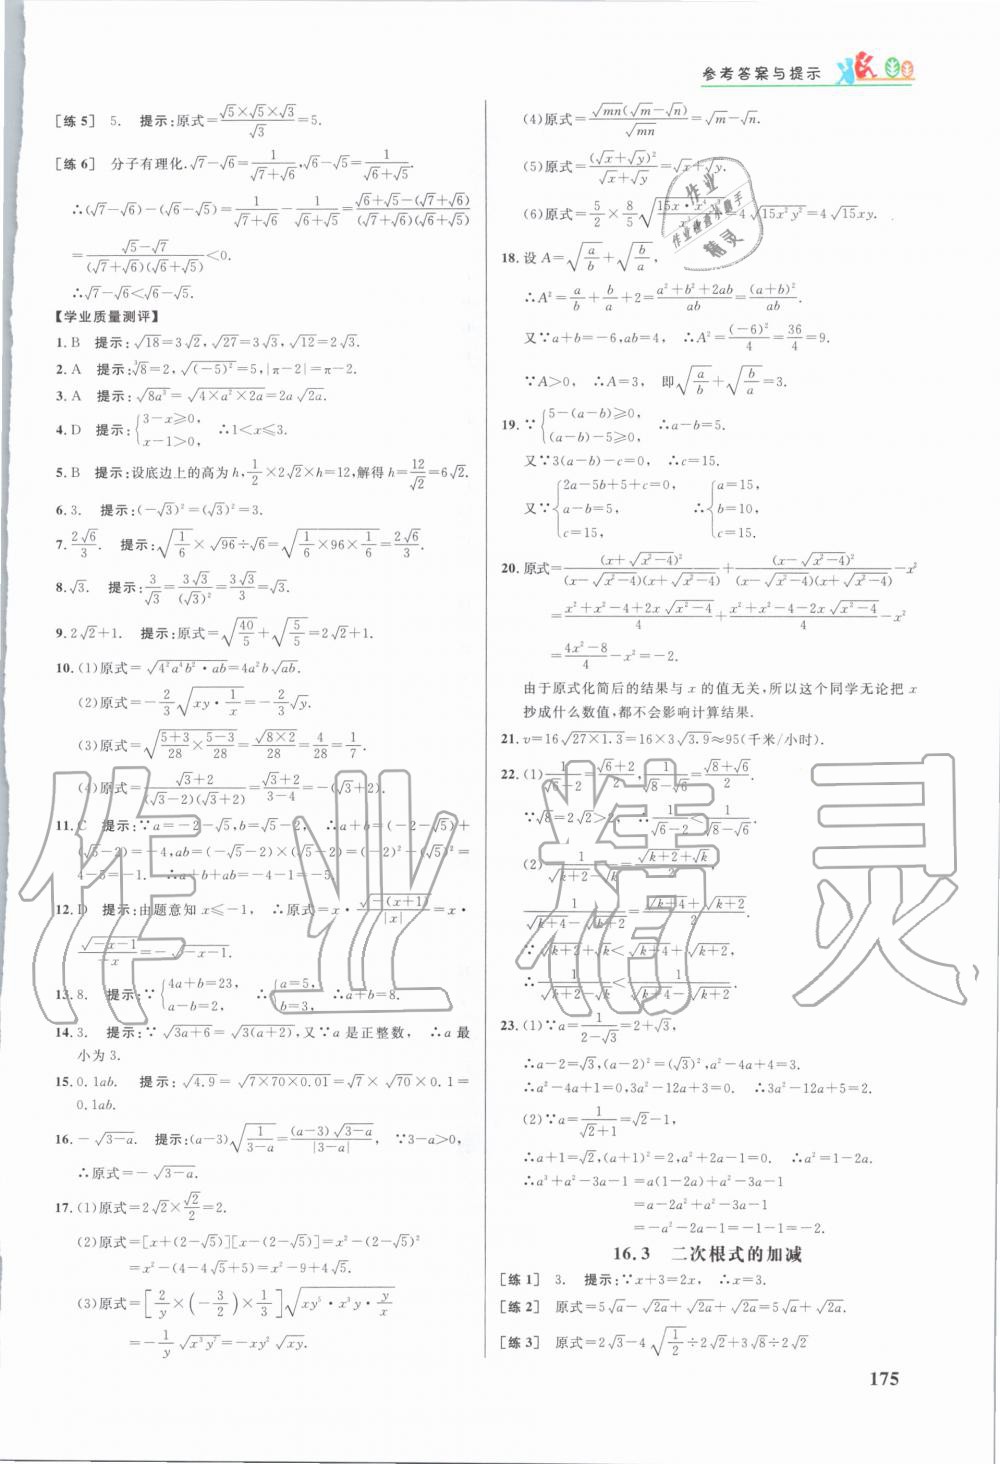 参考答案与提示
[练5] 5. 提示:原式=(√5×√5×√3)/√3=5.
[练6] 分子有理化.√7-√6=1/(√7+√6),√6-√5=1/(√6+√5).
∴(√7-√6)-(√6-√5)=1/(√7+√6)-1/(√6+√5)=(√6+√5-(√7+√6))/((√7+√6)(√6+√5))
=(√5-√7)/((√7+√6)(√6+√5))<0.
∴√7-√6<√6-√5.
【学业质量测评】
1. B 提示:√18=3√2,√27=3√3,√12=2√3.
2. A 提示:∛8=2,√(-5)²=5,|π-2|=π-2.
3. A 提示:√8a³=√(4×a²×2a)=2a√2a.
4. D 提示:{3-x≥0, x-1>0, ∴1<x≤3.
5. B 提示:设底边上的高为h,1/2×2√2×h=12,解得h=12/√2=6√2.
6. 3. 提示:(-√3)²=(√3)²=3.
7. 2√6/3. 提示:√(1/6)×√96÷√6=√(1/6×96×1/6)=2√6/3.
8. √3. 提示:3/√3=3√3/(√3)²=3√3/3=√3.
9. 2√2+1. 提示:原式=√(40/5)+√(5/5)=2√2+1.
10. (1)原式=√(4²a⁴b²·ab)=4a²b√ab.
(2)原式=-2/3√(xy·1/x)=-2/3√y.
(3)原式=√((5+3)/28×(5-3)/28)=√(8×2)/28=4/28=1/7.
(4)原式=(√3+2)/((√3-2)(√3+2))=(√3+2)/(3-4)=-(√3+2).
11. C 提示:∵a=-2-√5,b=√5-2, ∴a+b=(-2-√5)+
(√5-2)=-4,ab=(-√5-2)×(√5-2)=(-2)²-(√5)²=
4-5=-1. ∴a+b+ab=-4-1=-5.
12. D 提示:由题意知x≤-1, ∴原式=x·√(-(x+1))/|x|=x·
√(-x-1)/(-x)=-√(-x-1).
13. 8. 提示:∵{4a+b=23, a-b=2, ∴{a=5, b=3, ∴a+b=8.
14. 3. 提示:∵√(3a+6)=√(3(a+2)),又∵a是正整数, ∴a最
小为3.
15. 0.1ab. 提示:√4.9=√(7×70×0.01)=√7×√70×0.1=
0.1ab.
16. -√(3-a). 提示:(a-3)√(1/(3-a))=(a-3)√(3-a)/|3-a|, ∵3-a>0,
∴原式=-√(3-a).
17. (1)原式=2√2×√2/2=2.
(2)原式=[x+(2-√5)][x-(2-√5)]
=x²-(4-4√5+5)=x²-9+4√5.
(3)原式=[2/y×(-3/2)×1/3]√(xy⁵·x³y·y/x)
=-1/y√(x³y⁷)=-xy²√xy.
(4)原式=√mn(√m-√n)/√mn=√m-√n.
(5)原式=(√x+√y)²/(√x+√y)=√x+√y.
(6)原式=5/2×8/5√(15x·x⁴)=4√(15x²y²)=4√15xy.
18. 设A=√(a/b)+√(b/a),
∴A²=a/b+b/a+2=(a²+b²+2ab)/ab=(a+b)²/ab.
又∵a+b=-6,ab=4, ∴A²=(-6)²/4=36/4=9.
∵A>0, ∴A=3, 即√(a/b)+√(b/a)=3.
19. ∵{5-(a-b)≥0, (a-b)-5≥0, ∴a-b=5.
又∵3(a-b)-c=0, ∴c=15.
又∵{2a-5b+5+c=0, a-b=5, c=15, ∴{a=15, b=10, c=15.
20. 原式=(x+√(x²-4))²/((x-√(x²-4))(x+√(x²-4)))+(x-√(x²-4))²/((x-√(x²-4))(x+√(x²-4)))-x²
=(x²+x²-4+2x√(x²-4))/4+(x²+x²-4-2x√(x²-4))/4-x²
=(4x²-8)/4-x²=-2.
由于原式化简后的结果与x的值无关,所以这个同学无论把x
抄成什么数值,都不会影响计算结果.
21. v=16√(27×1.3)=16×3√3.9≈95(千米/小时).
22. (1)1/(√6-2)=(√6+2)/2,1/(√8-√6)=(√8+√6)/2.
∵√8=2√2>2, ∴1/(√6-2)<1/(√8-√6).
(2)1/(√(k+2)-√k)=(√(k+2)+√k)/2,
1/(√(k+4)-√(k+2))=(√(k+4)+√(k+2))/2.
∵√(k+2)+√k<√(k+4)+√(k+2),
∴1/(√(k+2)-√k)<1/(√(k+4)-√(k+2)).
23. (1)∵a=1/(2-√3)=2+√3,
∴a-2=√3,(a-2)²=(√3)²,a²-4a+4=3.
∴a²-4a+1=0,3a²-12a+3=0. ∴3a²-12a+5=2.
(2)∵a=1/(√2+1)=√2-1,
∴a+1=√2,(a+1)²=2,a²+2a-1=0. ∴a²=1-2a.
∴a³+a²-3a-1=a(1-2a)+a²-3a-1
=a-2a²+a²-3a-1
=-a²-2a-1=-1-1=-2.
16.3 二次根式的加减
[练1] 3. 提示:∵x+3=2x, ∴x=3.
[练2] 原式=5√a-√2a+√2a+√2a=5√a+√2a.
[练3] 原式=2√3-4√(1/2)÷2√2+3√8÷2√2
175
作业精灵